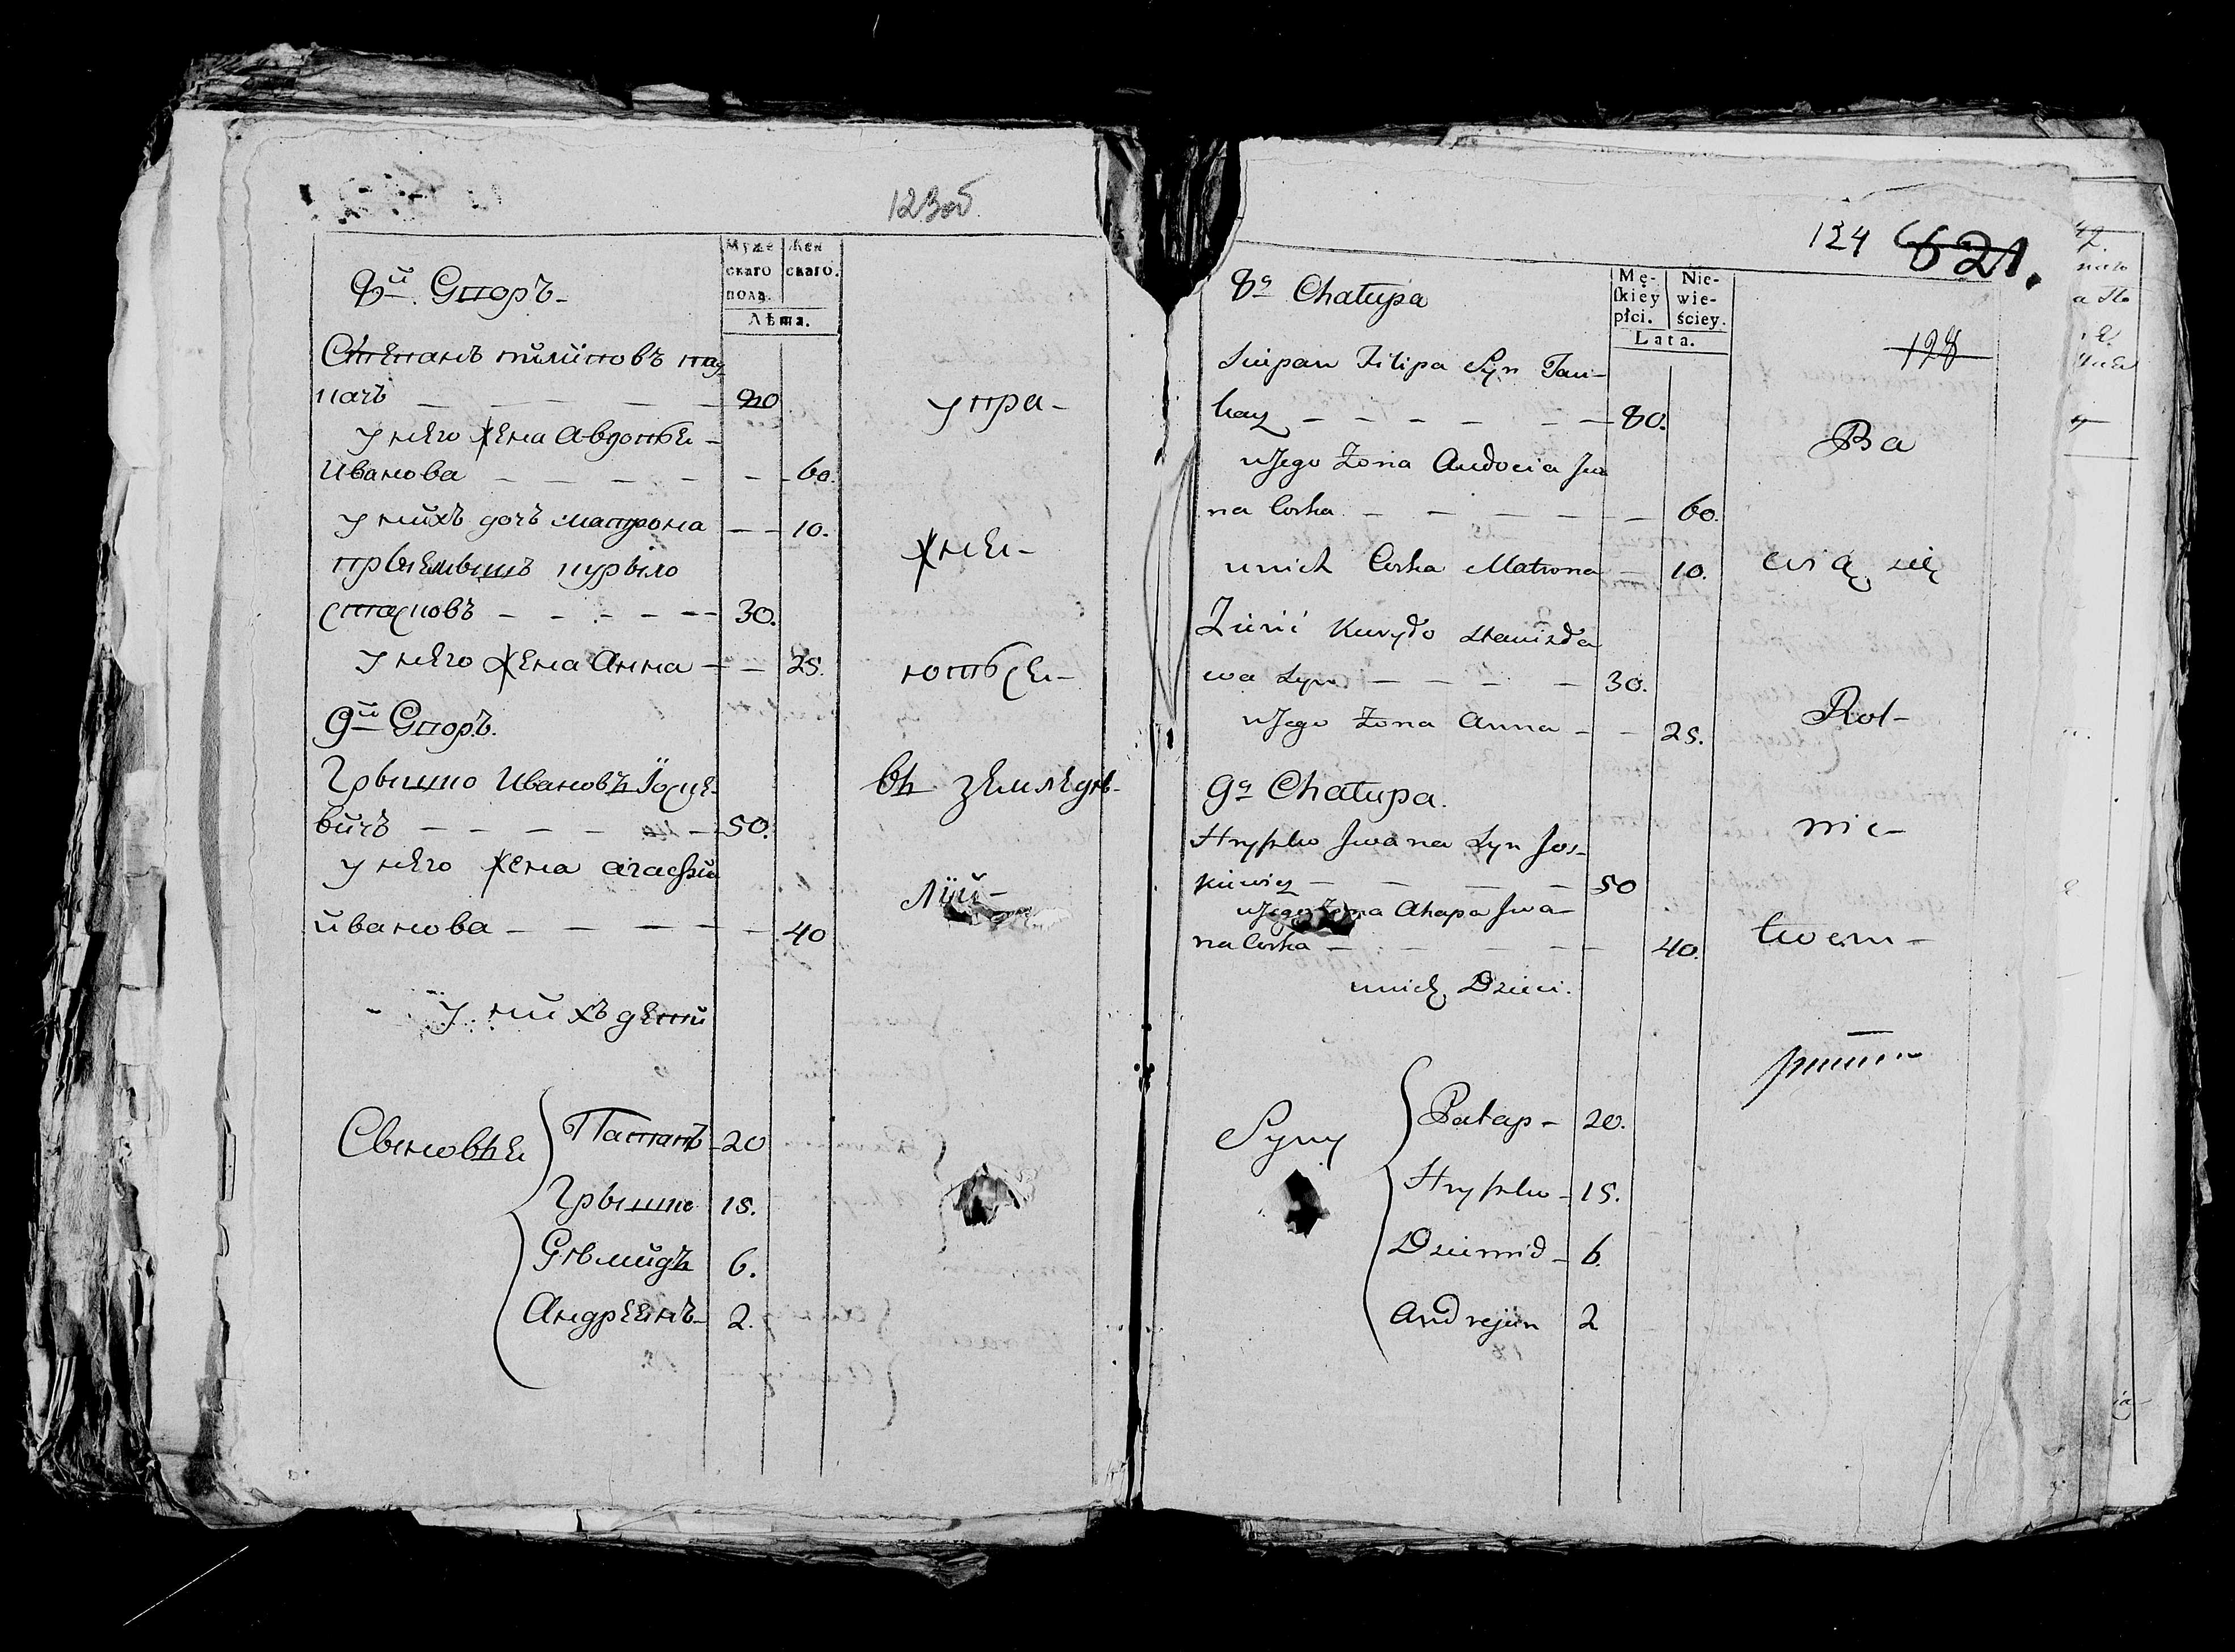 123об
Муже
скаго
пола.
Жен
скаго.
Лѣта.
8й Дворъ
Степанъ Пилиповъ Тау
качъ — — — — — 80
у него жена Авдотья
Иванова — — — — — 60.
у нихъ дочь Матрона — — 10.
Курыло
— — — — — 30.
у него жена Анна — — 25.
9й Дворъ.
Грышко Ивановъ
вичъ — — — — — 50.
у него жена Агафия
Иванова — — — — — 40
у нихъ дети
Сыновья
Патапъ 20
Грышко 15.
Дъмидъ 6.
Андреянъ 2.
упра-
жня-
ються
въ земледѣ-
лии
124 621.
128
Mę-
ſkiey
płci.
Nie-
wie-
ściey.
Lata.
8a Chałupa
Sciepan Filipa Syn Tau-
kacz — — — — — 80.
u Jego Zona Audocia Iwa
na Corka — — — — — 60.
u nich Corka Matrona — 10.
Zienć Kuryło Stanisła
wa Syn — — — — 30.
u Jego Zona Anna — — 25.
9a Chałupa.
Hryszko Iwana Syn Jos-
kiewicz — — — — 50
u Jego Zona Ahapa Iwa-
na Corka — — — — — 40.
u nich Dzieci.
Syny
Patap — 20.
Hryszko — 15.
Dziemid — 6.
Andrejan 2
Ba
wią się
Rol-
nic-
twem —